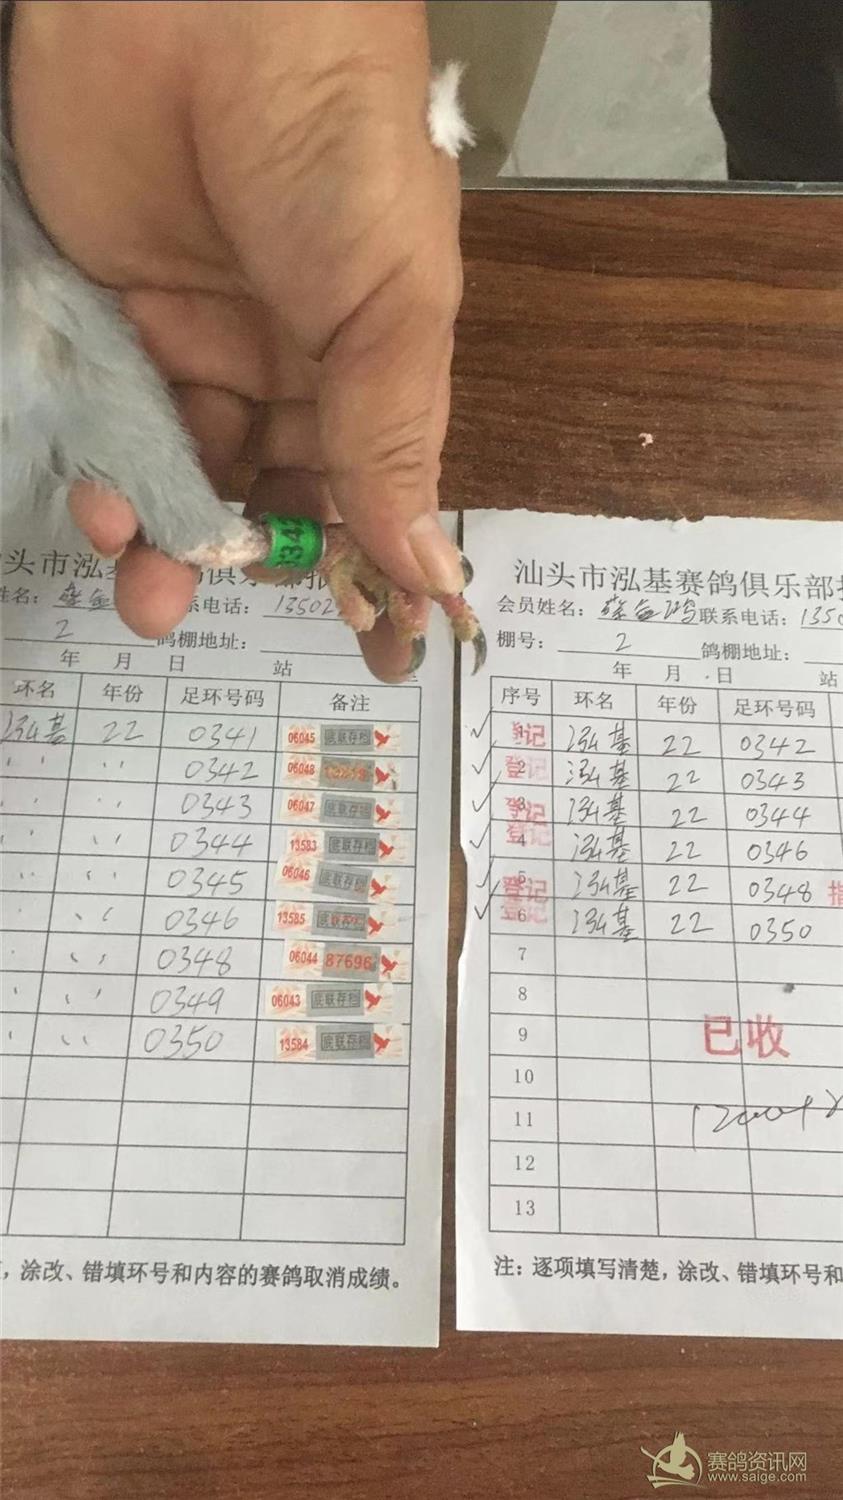 0342
头市泓基
俱乐部报
姓名:
联系电话: 13502
2 鸽棚地址:
年 月 日 站
环名 年份 足环号码 备注
泓基 22 0341 06045 底联存档
〃 〃 0342 06048
〃 〃 0343 06047 底联存档
〃 〃 0344 13583 底联存档
〃 〃 0345 06046 底联存档
〃 〃 0346 13585 底联存档
〃 〃 0348 06044 87696
〃 〃 0349 06043 底联存档
〃 〃 0350 13584 底联存档
,涂改、错填环号和内容的赛鸽取消成绩。
汕头市泓基赛鸽俱乐部报
会员姓名: 联系电话: 1350
棚号: 2 鸽棚地址:
年 月 日 站
序号 环名 年份 足环号码
✓ 1 登记 泓基 22 0342
✓ 2 登记 泓基 22 0343
✓ 3 登记 泓基 22 0344
✓ 4 登记 泓基 22 0346
✓ 5 登记 泓基 22 0348 指
✓ 6 登记 泓基 22 0350
7
8
9 已收
10
11
12
13
注:逐项填写清楚,涂改、错填环号和
赛鸽资讯网
www.saige.com